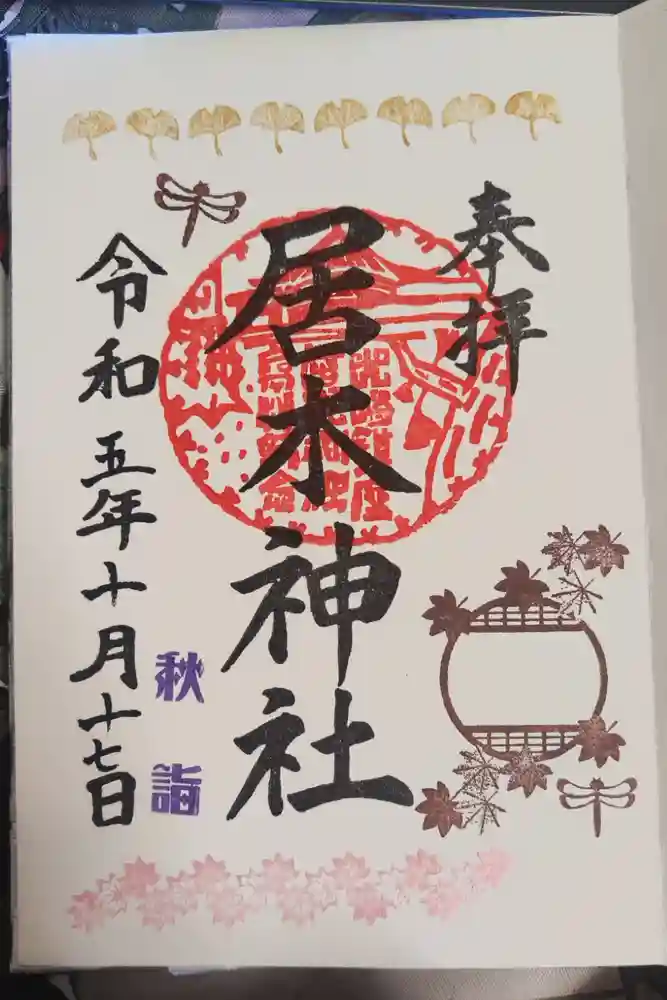 奉拝
居木神社
令和五年十月十七日
秋詣